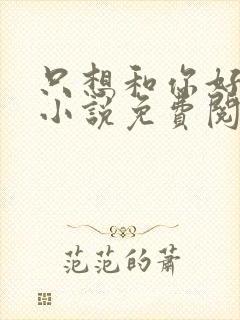 只想和你好
小说免費閱
范范的蕭